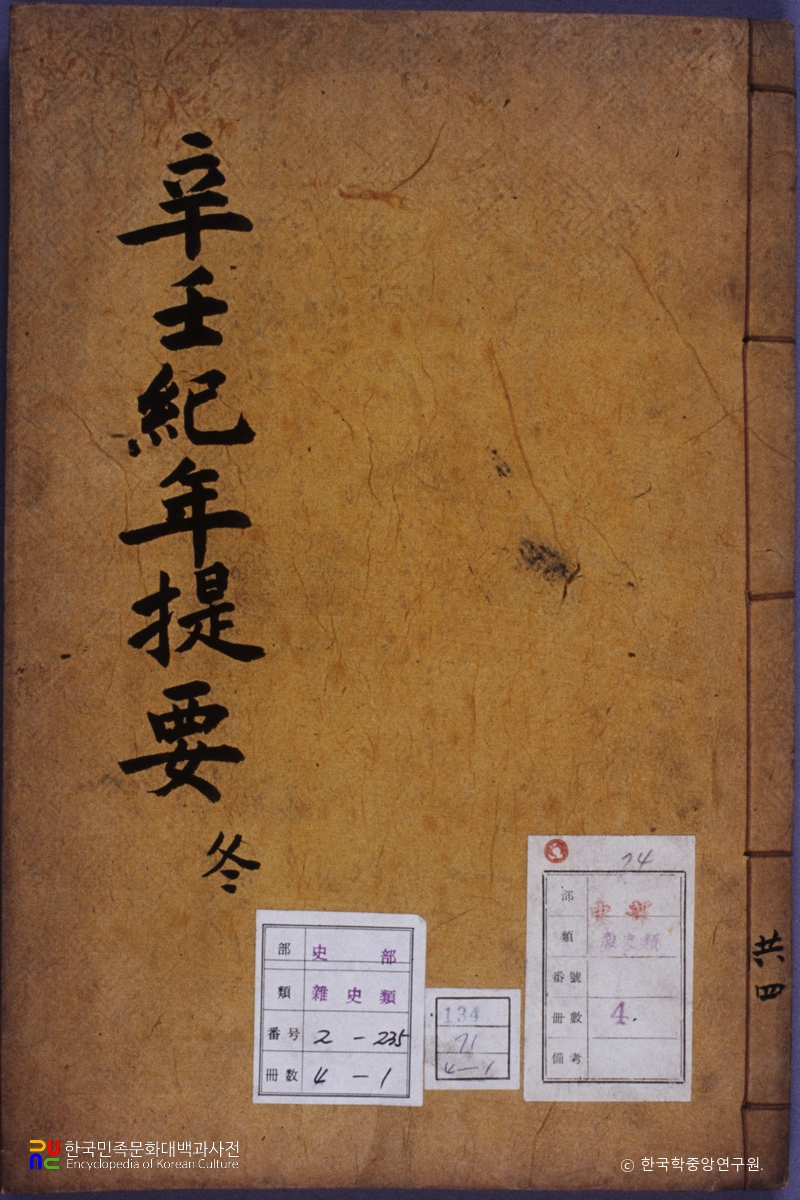 辛壬紀年提要
冬
共四
部 史部
類 雜史類
番号 2-235
冊数 4-1
134
71
4-1
74
部 史部
類 雜史類
番號
冊數 4.
備考
한국민족문화대백과사전
Encyclopedia of Korean Culture
© 한국학중앙연구원.